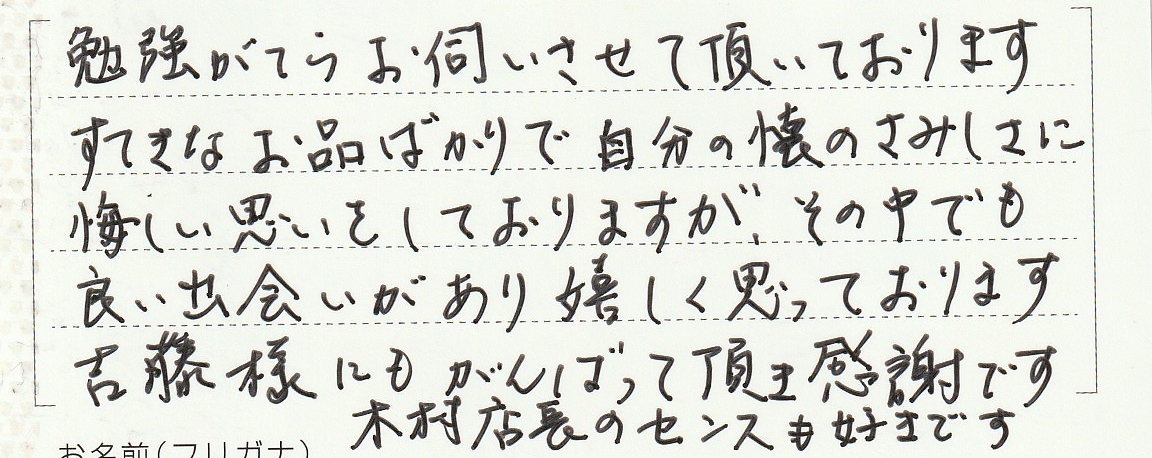 勉強がてらお伺いさせて頂いております
すてきなお品ばかりで自分の懐のさみしさに
悔しい思いをしておりますが、その中でも
良い出会いがあり嬉しく思っております
吉藤様にもがんばって頂き感謝です
木村店長のセンスも好きです
お名前(フリガナ)